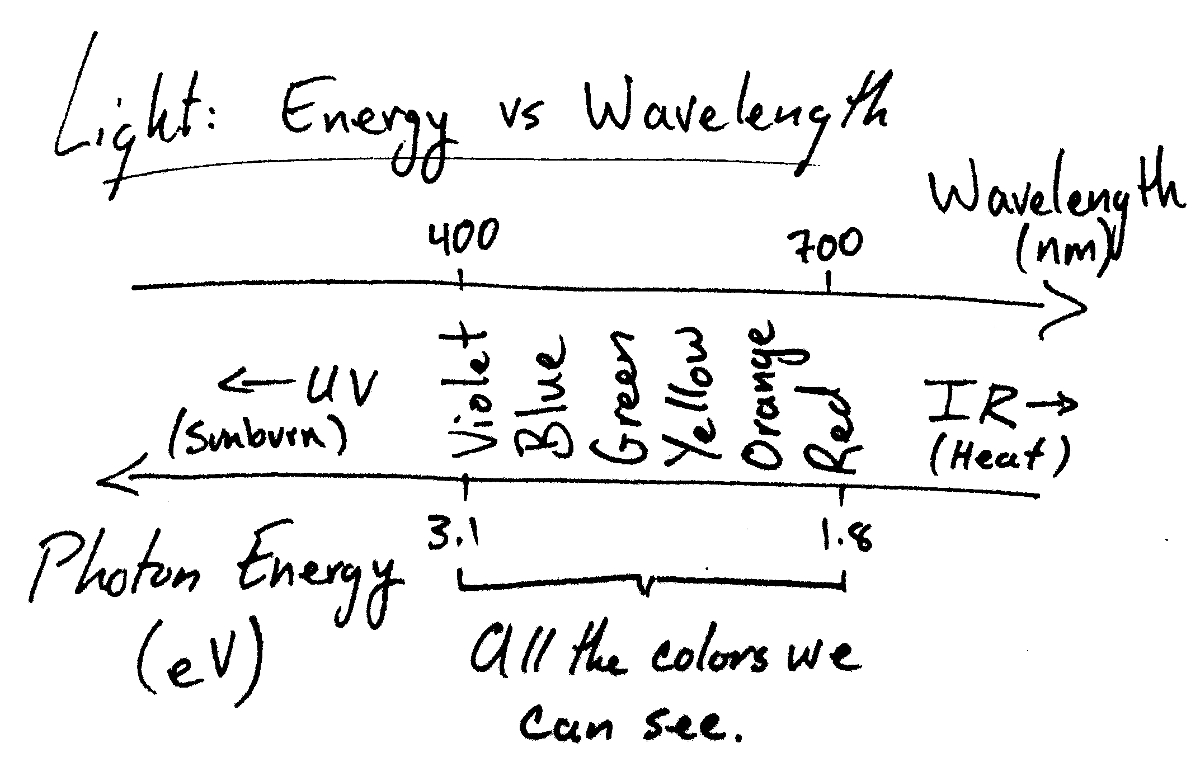 Light: Energy vs Wavelength
Wavelength
(nm)
400 700
Violet
Blue
Green
Yellow
Orange
Red
← UV
(Sunburn)
IR →
(Heat)
3.1 1.8
Photon Energy
(eV)
All the colors we
can see.